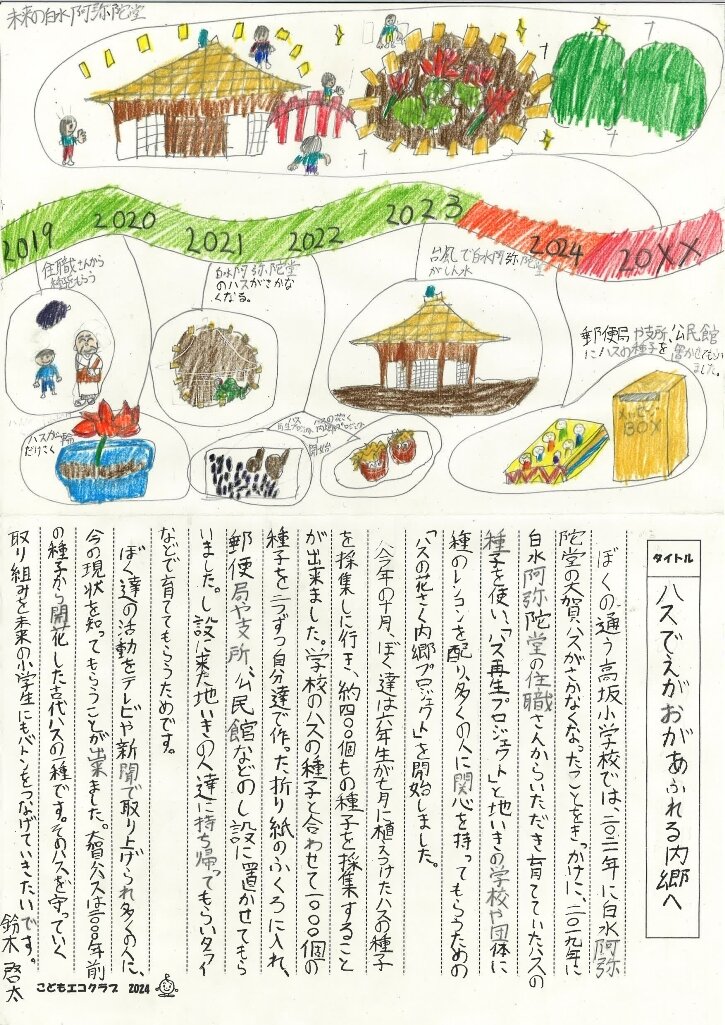 未来の白水阿弥陀堂
2019
2020
2021
2022
2023
2024
20XX
住職さんから
種をもらう
白水阿弥陀堂
のハスがさかな
くなる。
台風で白水阿弥陀堂
がしん水
郵便局や支所、公民館
にハスの種子を置かせてもらい
ました。
ハスが一輪
だけさく
開始
メッセージ
BOX
タイトル
ハスでえがおがあふれる内郷へ
ぼくの通う高坂小学校では、二〇二一年に白水阿弥
陀堂の大賀ハスがさかなくなったことをきっかけに、二〇一九年に
白水阿弥陀堂の住職さんからいただき育てていたハスの
種子を使い、「ハス再生プロジェクト」と地いきの学校や団体に
種のレンコンを配り、多くの人に関心を持ってもらうための
「ハスの花さく内郷プロジェクト」を開始しました。
今年の十月、ぼく達は六年生が七月に植えつけたハスの種子
を採集しに行き、約四〇〇個もの種子を採集すること
が出来ました。学校のハスの種子と合わせて一〇〇〇個の
種子を二つずつ自分達で作った、折り紙のふくろに入れ、
郵便局や支所、公民館などのし設に置かせてもら
いました。し設に来た地いきの人達に持ち帰ってもらいタライ
などで育ててもらうためです。
ぼく達の活動をテレビや新聞で取り上げられ多くの人に、
今の現状を知ってもらうことが出来ました。大賀ハスは二〇〇〇年前
の種子から開花した古代ハスの一種です。そのハスを守っていく
取り組みを未来の小学生にもバトンをつなげていきたいです。
鈴木 啓太
こどもエコクラブ 2024